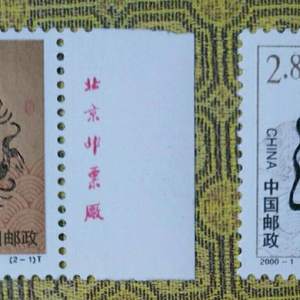 国邮政
(2-1)T
北京邮票厂
2.8
CHINA
中国邮政
2000-1